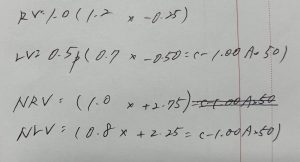 RV=1.0(1.2 x -0.25)
LV=0.5p(0.7 x -0.50=c-1.00 Ax 50)
NRV=(1.0 x +2.75) =c-1.00 Ax50
NLV=(0.8 x +2.25=c-1.00 Ax50)